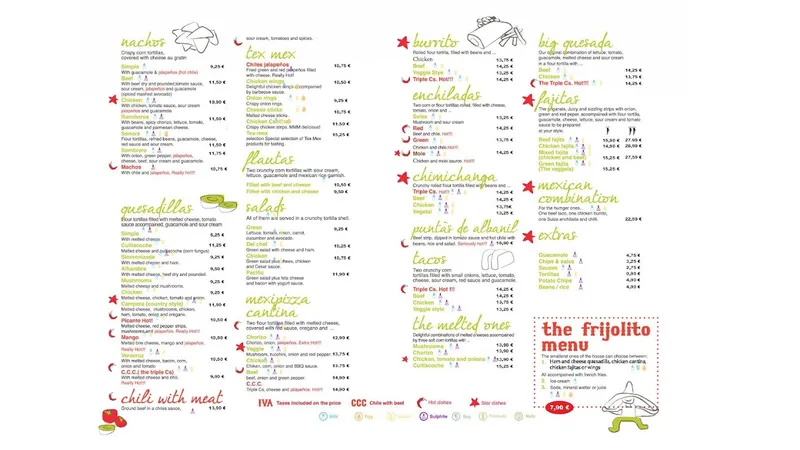 nachos
Crispy corn tortillas,
covered with cheese au gratin
Simple 9,25 €
With guacamole & jalapeños (hot chile)
Beef 11,50 €
With beef dry and pounded tomato, sour
cream, jalapeños and guacamole
Chicken 10,50 €
With chicken, tomato sauce, sour cream
jalapeños and guacamole.
Rancheros 11,50 €
With beans, spicy chorizo, lettuce, tomato
guacamole and parmesan cheese.
Sonora 11,50 €
Flour tortillas, refried beans, guacamole, cheese,
red sauce and sour cream.
Sombrero 11,75 €
With onion, green pepper, jalapeños,
cheese, beef, sour cream and guacamole.
Machos 10,75 €
With chile and jalapeños, Really Hot!!
quesadillas
Flour tortillas filled with melted cheese, tomato
sauce accompained, guacamole and sour cream
Simple 8,25 €
With melted cheese.
Cuitlacoche 11,25 €
Melted cheese and cuitlacoche (corn fungus)
Sincronizada 9,25 €
With melted cheese and ham.
Alhambra 9,50 €
With melted cheese, beef dry and pounded.
Mushrooms 9,25 €
Melted cheese and mushrooms.
Chicken 9,25 €
Melted cheese, chicken, tomato and onion.
Campera (country style) 11,50 €
Melted cheese, mushrooms, chicken,
ham, tomate, onion and oregano
Picante Hot!! 10,50 €
Melted cheese, red pepper strips,
mushrooms and jalapeños, Really Hot!!
Mango 10,50 €
Melted brie cheese, mango and jalapeños,
Really Hot!!
Veracruz 10,50 €
With melted cheese, bacon, corn,
onion and tomato
C.C.C.( the triple Cs) 9,50 €
With melted cheese and chili.
Really Hot!!
chili with meat
Ground beef in a chiles sauce, 13,50 €
sour cream, tomatoes and spices.
tex mex
Chiles jalapeños 10,75 €
Fried green and red jalapeños filled
with cheese. Really Hot!
Chicken wings 10,50 €
Delightful chicken wings accompained
by barbecue sauce.
Onion rings 9,25 €
Crispy onion rings.
Cheese sticks 10,75 €
Melted cheese sticks.
Chicken Cantina 11,50 €
Crispy chicken strips. MMM delicious!
Tex-mex 15,25 €
selection Special selection of Tex Mex
products for tasting.
flautas
Two crunchy corn tortillas with sour cream,
lettuce, guacamole and mexican rice garnish.
Filled with beef and cheese 10,50 €
Filled with chicken and cheese 9,50 €
salads
All of them are served in a crunchy tortilla shell.
Green 9,25 €
Lettuce, tomato, onion, carrot,
cucumber and avocado.
Del chef 11,25 €
Green salad with cheese and ham.
Chicken 10,75 €
Green salad plus cheese, chicken
and Cesar sauce.
Pacific 11,90 €
Green salad plus feta cheese
and bacon with yogurt sauce.
mexipizza
cantina
Two flour tortillas filled with melted cheese,
covered with red sauce, oregano and ...
Chorizo 12,90 €
Tomato, onion, jalapeños. Extra Hot!!
Veggie 13,75 €
Mushroom, zucchini, onion and red pepper.
Chicken 13,75 €
Chiken, corn, onion and BBQ sauce.
Beef 14,90 €
beef, onion and green pepper.
C.C.C. 14,90 €
Triple Cs, cheese and jalapeños. Hot!
burrito
Rolled flour tortilla, filled with beans and ...
Chicken 13,75 €
Beef 14,25 €
Veggie Style 13,25 €
Triple Cs. Hot!!! 14,25 €
enchiladas
Two corn or flour tortillas rolled, filled with cheese,
tomato, onion and ...
Suiza 13,25 €
Mushroom and sour cream
Red 14,25 €
Beef and chile, Hot!!
Green 13,75 €
Chicken and chile, Hot!!
Mole 14,25 €
Chicken and mole sauce. Hot!!
chimichanga
Crunchy rolled flour tortilla filled with beans and ...
Triple Cs. Hot !! 14,25 €
Beef 14,25 €
Chicken 13,75 €
Vegetal 13,25 €
puntas de albanil
Beef strip, dipped in tomato sauce and hot chile with
beans, rice and salad. Seriously hot!! 14,90 €
tacos
Two crunchy corn
tortillas filled with small onions, lettuce, tomato,
cheese, sour cream, red sauce and guacamole.
Triple C. Hot !!! 14,25 €
Beef 14,25 €
Chicken 13,75 €
Veggie style 13,25 €
the melted ones
Delightful combinations of melted cheeses accompained
by three soft corn tortillas with ...
Mushrooms 13,90 €
Chorizo 13,90 €
Chicken, tomato and onions 13,75 €
Cuitlacoche 15,25 €
big quesada
Our original combination of lettuce, tomato,
guacamole, melted cheese and sour cream
in a flour tortilla with ...
Beef 14,25 €
Chicken 13,75 €
The Triple Cs. Hot!!! 14,25 €
fajitas
The originals. Juicy and sizzling strips with onion,
green and red pepper, accompained with four tortilla,
guacamole, cheese, lettuce, sour cream and tomato
sauce to be prepared
at your style.
Beef fajita 15,90 € 27,90 €
Chicken fajita 14,90 € 26,90 €
Mixed fajita
(chicken and beef) 15,25 € 27,50 €
Green fajita 15,25 €
(The veggels)
mexican
combination
For the hunger ones...
One beef taco, one chicken burrito,
one Suiza enchilada and chili. 22,50 €
extras
Guacamole 4,75 €
Chips & salsa 3,25 €
Sauces 2,75 €
Tortillas 0,90 €
Potato Chips 4,90 €
Beans / rice 4,90 €
the frijolito
menu
The smallest ones of the house can choose between:
1. Ham and cheese quesadilla, chicken cantina,
chicken fajitas or wings
All accompained with french fries.
2. Ice cream
3. Soda, mineral water or juice
7,90 €
IVA Taxes included on the price CCC Chile with beef Hot dishes Star dishes
Milk Egg Gluten Sulphite Soy Peanuts Nuts